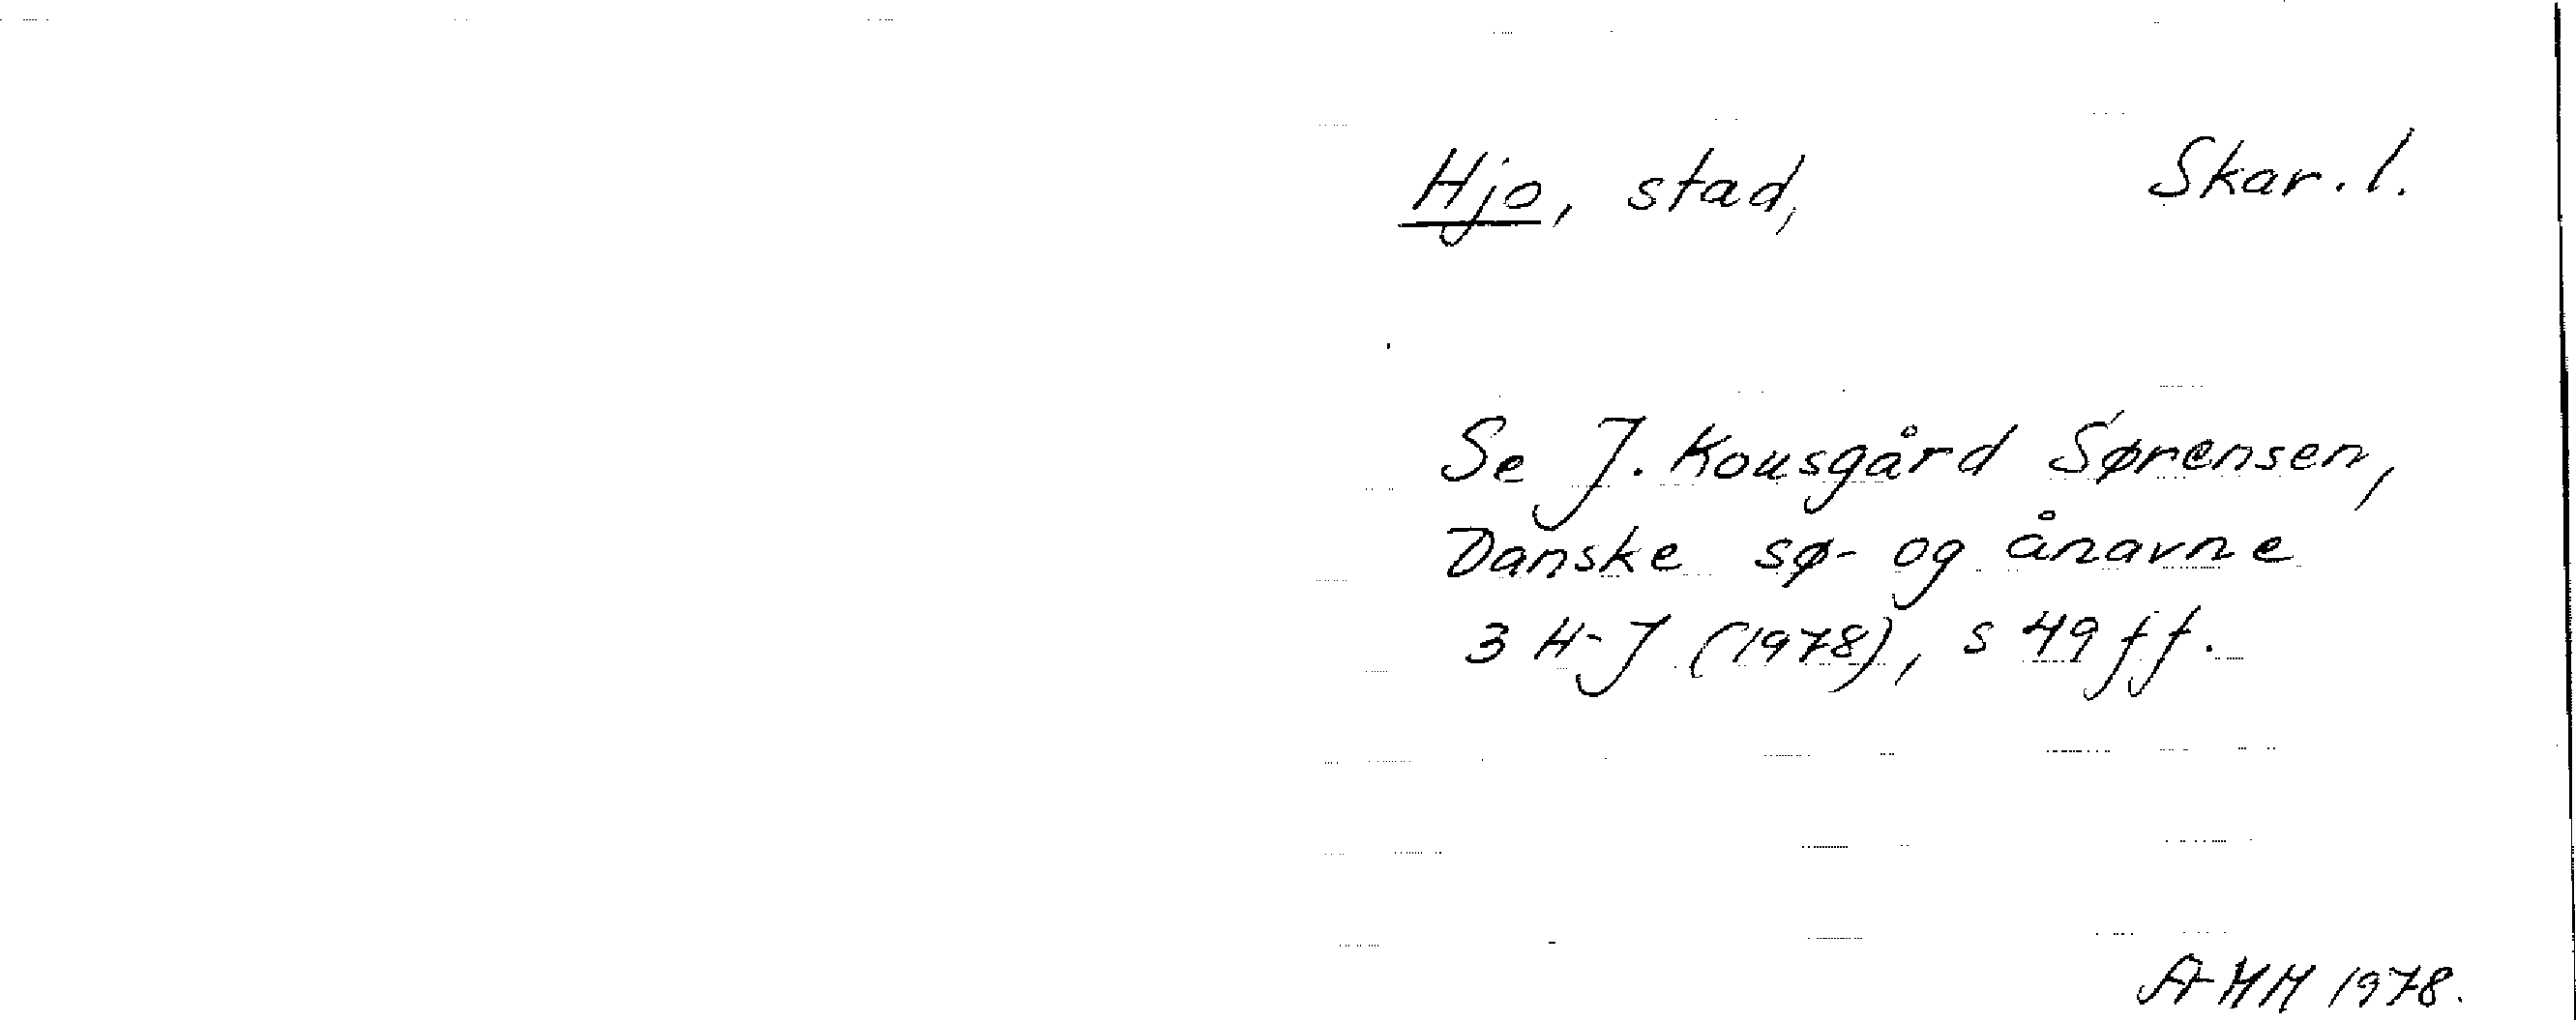 Hjo, stad, Skar. l.
Se J. Kousgård Sørensen,
Danske sø- og ånavne
3 H-J (1978), s 49 ff.
1978.